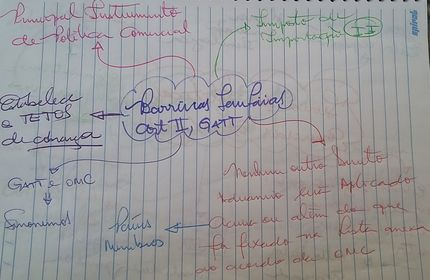 Principal Instrumento
de Política Comercial
Imposto de
Importação II
Estabelece
o TETOS
de cobrança
Barreiras Tarifárias
art II, GATT
GATT e OMC
Sinonimos
Países
Membros
Nenhum outro Direito
aduaneiro será Aplicado
Acima ou além do que
foi fixado na lista anexa
ao acordo da OMC